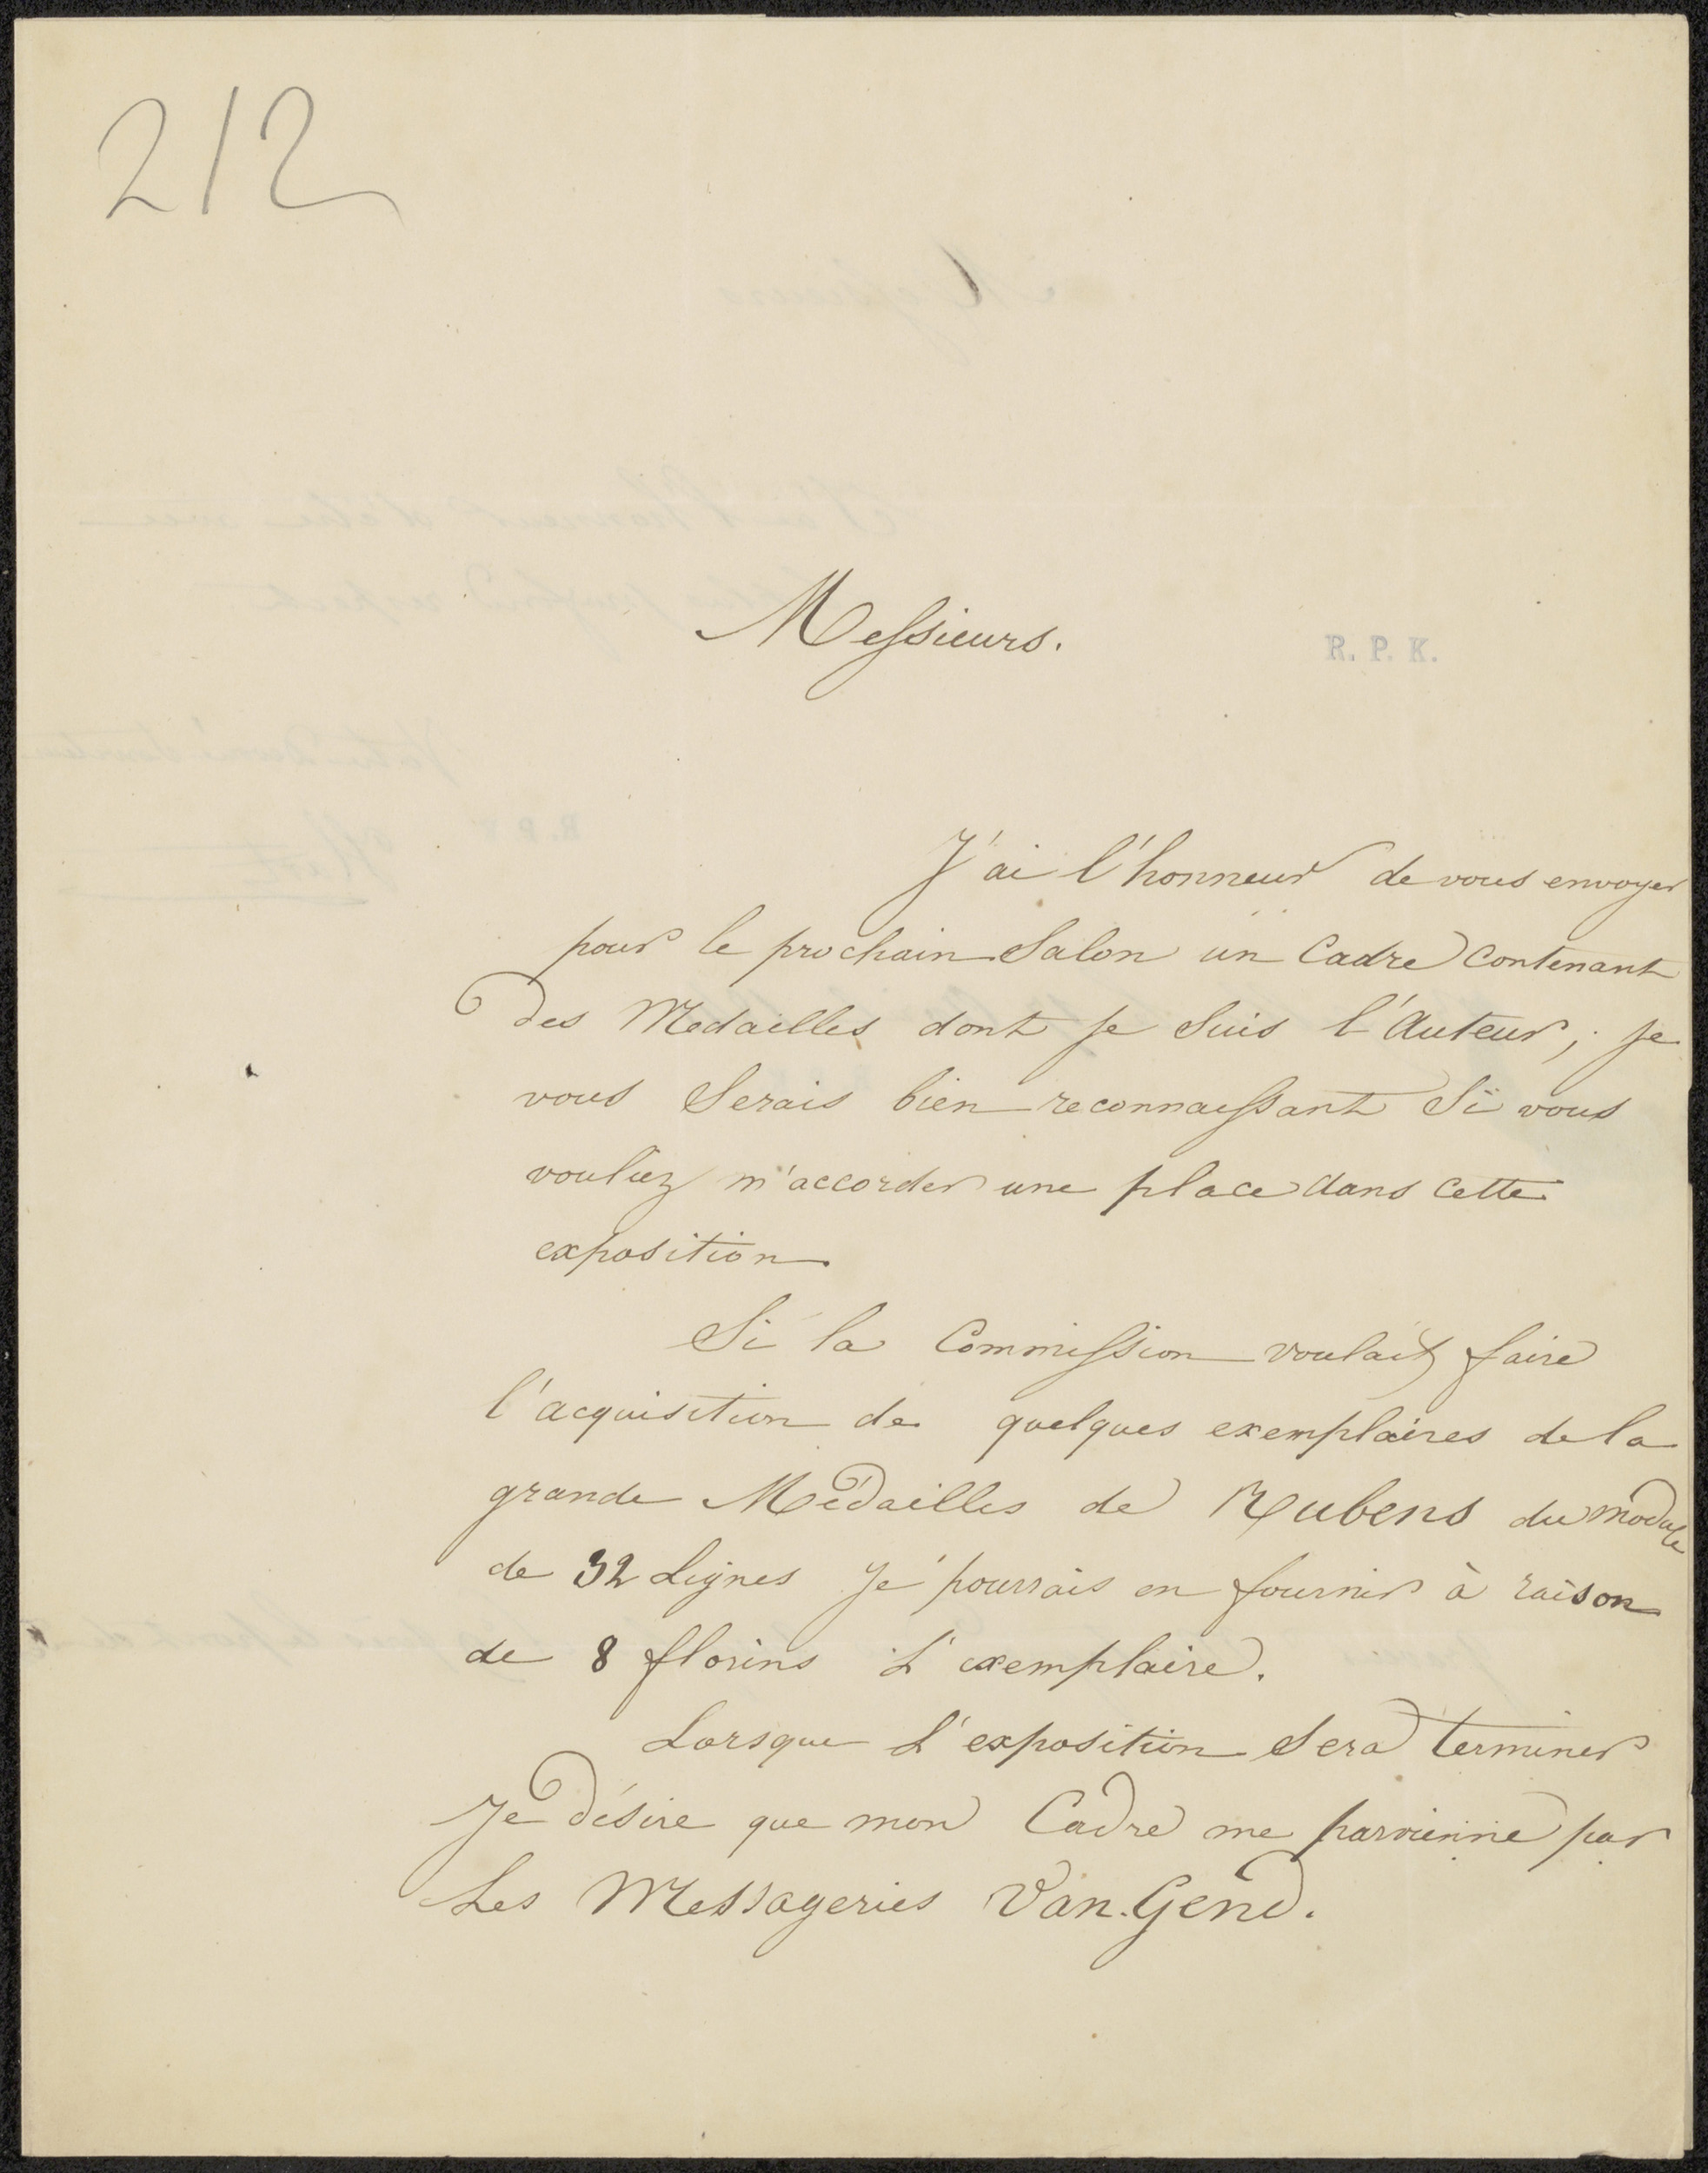 212
Messieurs.
R. P. K.
J'ai l'honneur de vous envoyer
pour le prochain Salon un Cadre Contenant
des Medailles dont je suis l'Auteur; je
vous Serais bien reconnaissant Si vous
vouliez m'accorder une place dans Cette
exposition.
Si la Commission voulait faire
l'acquisition de quelques exemplaires de la
grande Médailles de Rubens du module
de 32 Lignes Je pourrais en fournir à raison
de 8 florins L'exemplaire.
Lorsque L'exposition Sera terminer
Je désire que mon Cadre me parvienne par
Les Messageries Van.Gend.